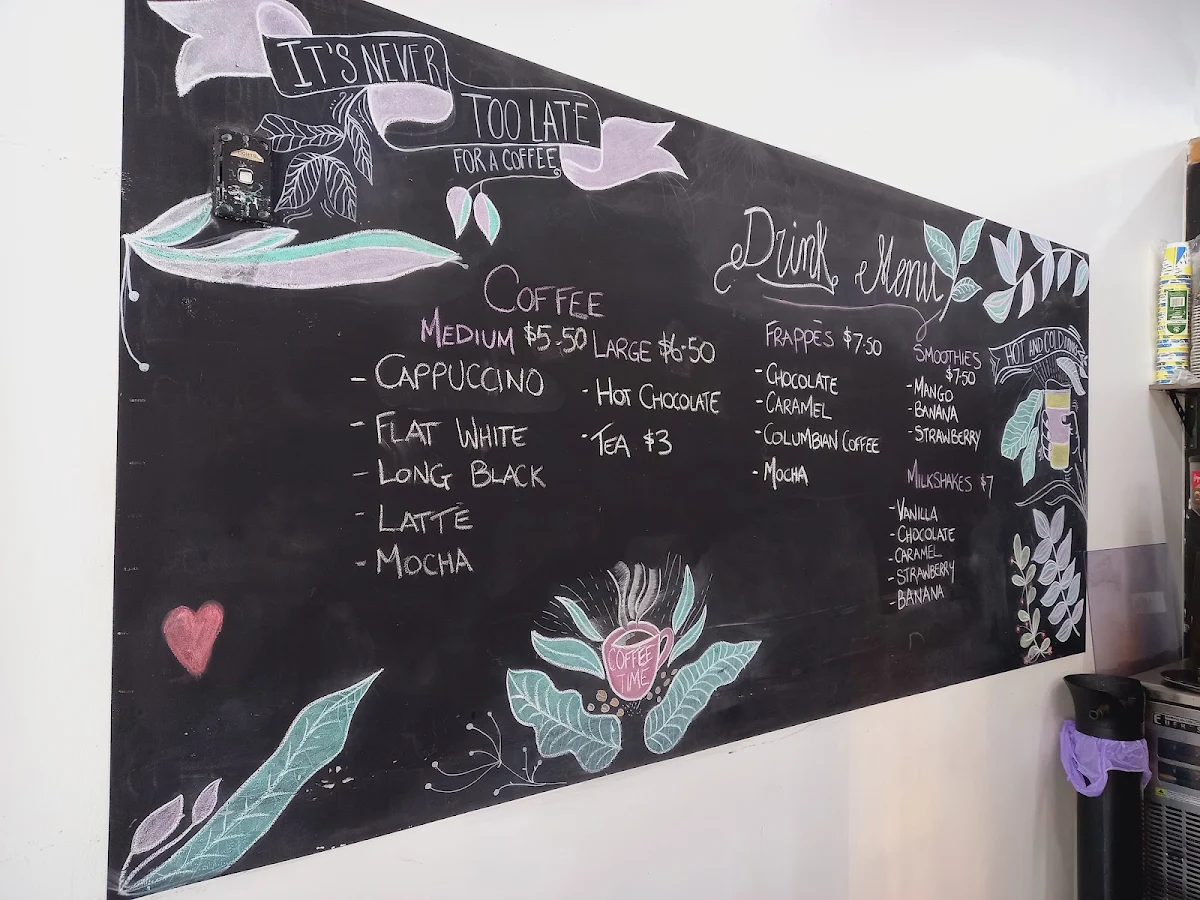 IT'S NEVER
TOO LATE
FOR A COFFEE
Drink Menu
COFFEE
MEDIUM $5.50 LARGE $6.50
- CAPPUCCINO
- FLAT WHITE
- LONG BLACK
- LATTE
- MOCHA
- HOT CHOCOLATE
- TEA $3
FRAPPÉS $7.50
- CHOCOLATE
- CARAMEL
- COLUMBIAN COFFEE
- MOCHA
SMOOTHIES
$7.50
- MANGO
- BANANA
- STRAWBERRY
MILKSHAKES $7
- VANILLA
- CHOCOLATE
- CARAMEL
- STRAWBERRY
- BANANA
HOT AND COLD DRINKS
COFFEE
TIME